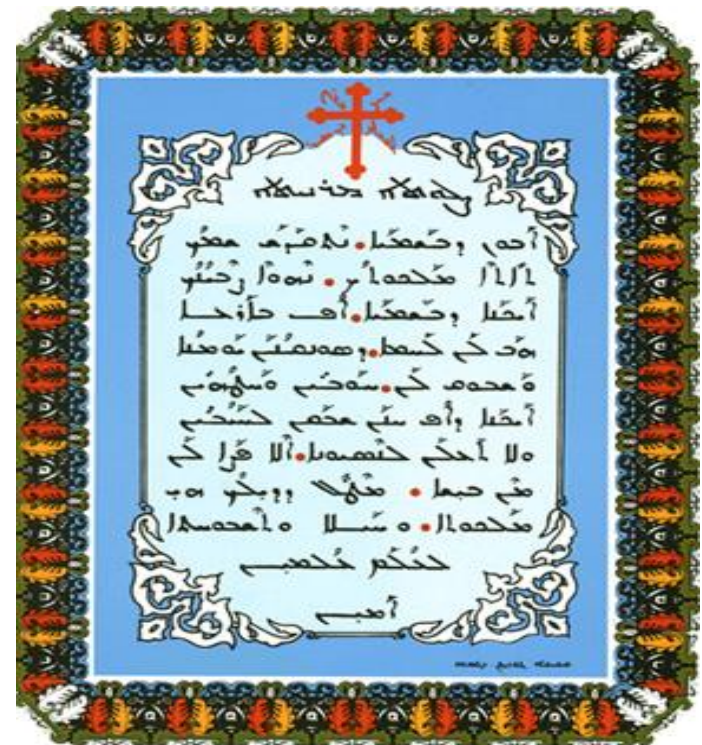 ܨܠܘܬܐ ܡܪܢܝܬܐ
ܐܒܘܢ ܕܒܫܡܝܐ. ܢܬܩܕܫ ܫܡܟ
ܬܐܬܐ ܡܠܟܘܬܟ. ܢܗܘܐ ܨܒܝܢܟ
ܐܝܟܢܐ ܕܒܫܡܝܐ. ܐܦ ܒܐܪܥܐ
ܗܒ ܠܢ ܠܚܡܐ. ܕܣܘܢܩܢܢ ܝܘܡܢܐ
ܘܫܒܘܩ ܠܢ. ܚܘܒܝܢ ܘܚܛܗܝܢ
ܐܝܟܢܐ ܕܐܦ ܚܢܢ ܫܒܩܢ ܠܚܝܒܝܢ
ܘܠܐ ܬܥܠܢ ܠܢܣܝܘܢܐ. ܐܠܐ ܦܨܐ ܠܢ
ܡܢ ܒܝܫܐ. ܡܛܠ ܕܕܝܠܟ ܗܝ
ܡܠܟܘܬܐ. ܘܚܝܠܐ ܘܬܫܒܘܚܬܐ
ܠܥܠܡ ܥܠܡܝܢ
ܐܡܝܢ